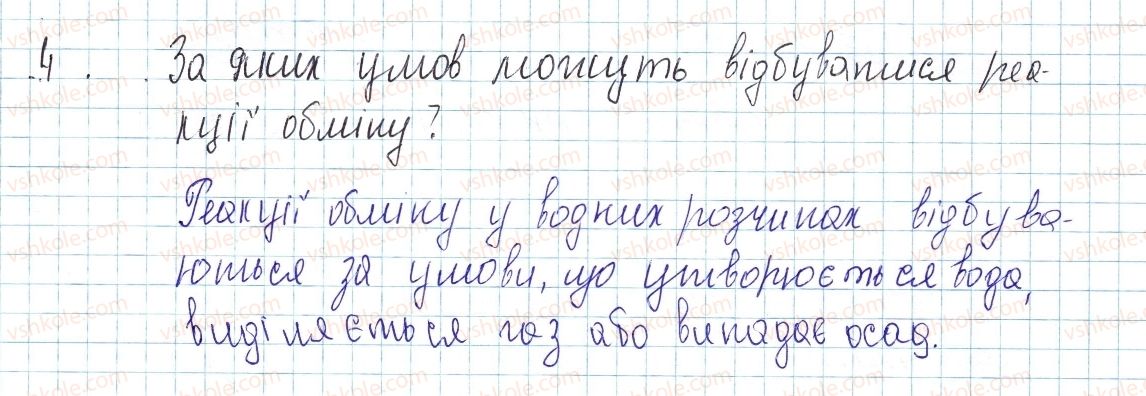 4. За яких умов можуть відбуватися реа-
кції обміну?
Реакції обміну у водних розчинах відбува-
ються за умови, що утворюється вода,
виділяється газ або випадає осад.